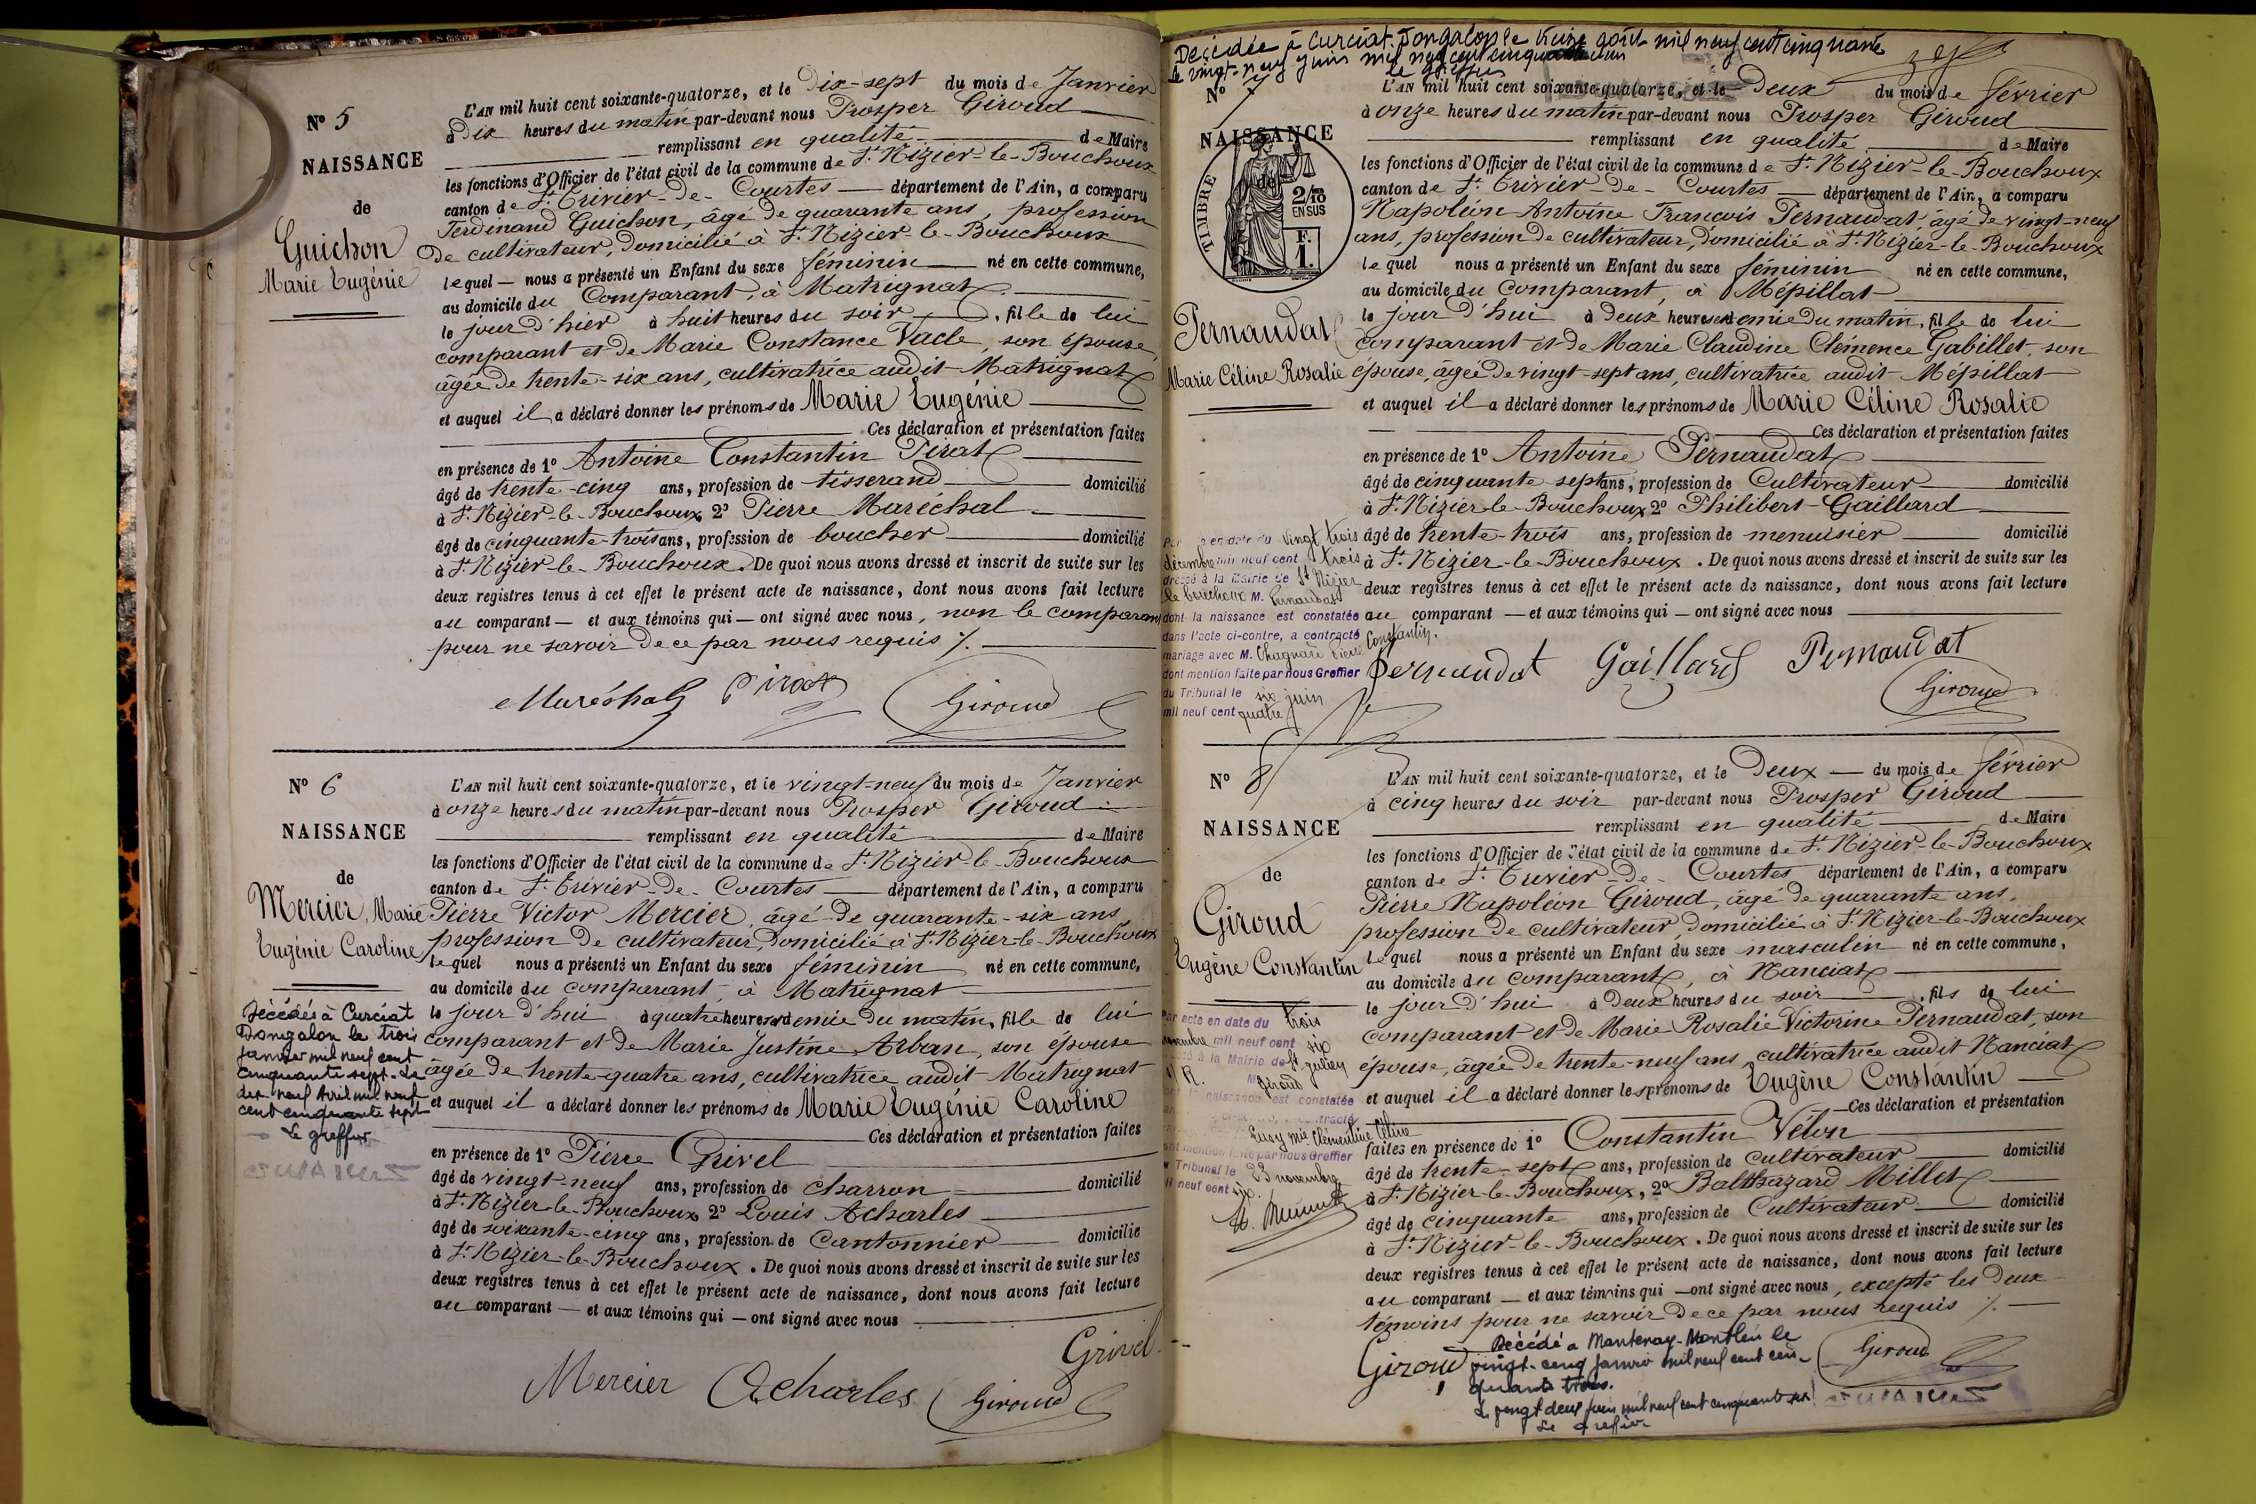 Nº 5
NAISSANCE
de
Guichon
Marie Eugénie
L'AN mil huit cent soixante-quatorze, et le Dix-sept du mois de Janvier
à Dix heures du matin par-devant nous Prosper Giroud
remplissant en qualité de Maire
les fonctions d'Officier de l'état civil de la commune de St Nizier-le-Bouchoux
canton de St Trivier-de-Courtes département de l'Ain, a comparu
Ferdinand Guichon, âgé de quarante ans, profession
de cultivateur, domicilié à St Nizier-le-Bouchoux
lequel nous a présenté un Enfant du sexe féminin né en cette commune,
au domicile du Comparant, à Matrignat
le jour d'hier à huit heures du soir, fille de lui
comparant et de Marie Constance Vacle, son épouse,
âgée de trente-six ans, cultivatrice audit Matrignat
et auquel il a déclaré donner les prénoms de Marie Eugénie
Ces déclaration et présentation faites
en présence de 1º Antoine Constantin Pirat
âgé de trente-cinq ans, profession de tisserand domicilié
à St Nizier-le-Bouchoux 2º Pierre Maréchal
âgé de cinquante-trois ans, profession de boucher domicilié
à St Nizier-le-Bouchoux. De quoi nous avons dressé et inscrit de suite sur les
deux registres tenus à cet effet le présent acte de naissance, dont nous avons fait lecture
au comparant et aux témoins qui ont signé avec nous, non le comparant
pour ne savoir de ce par nous requis %.
Maréchal Pirat Giroud
Nº 6
NAISSANCE
de
Mercier, Marie
Eugénie Caroline
Décédée à Curciat
Dongalon le trois
janvier mil neuf cent
cinquante sept. Le
dix-neuf Avril mil neuf
cent cinquante sept
Le greffier
L'AN mil huit cent soixante-quatorze, et le vingt-neuf du mois de Janvier
à onze heures du matin par-devant nous Prosper Giroud
remplissant en qualité de Maire
les fonctions d'Officier de l'état civil de la commune de St Nizier-le-Bouchoux
canton de St Trivier-de-Courtes département de l'Ain, a comparu
Pierre Victor Mercier, âgé de quarante-six ans,
profession de cultivateur, domicilié à St Nizier-le-Bouchoux
lequel nous a présenté un Enfant du sexe féminin né en cette commune,
au domicile du comparant, à Matrignat
le jour d'hui à quatre heures et demie du matin, fille de lui
comparant et de Marie Justine Arban, son épouse
âgée de trente-quatre ans, cultivatrice audit Matrignat
et auquel il a déclaré donner les prénoms de Marie Eugénie Caroline
Ces déclaration et présentation faites
en présence de 1º Pierre Grivel
âgé de vingt-neuf ans, profession de charron domicilié
à St Nizier-le-Bouchoux 2º Louis Acharles
âgé de soixante-cinq ans, profession de Cantonnier domicilié
à St Nizier-le-Bouchoux. De quoi nous avons dressé et inscrit de suite sur les
deux registres tenus à cet effet le présent acte de naissance, dont nous avons fait lecture
au comparant et aux témoins qui ont signé avec nous
Grivel
Mercier Acharles Giroud
Décédée à Curciat Dongalon le treize août mil neuf cent cinquante
le vingt-neuf juin mil neuf cent cinquante
le greffier
Nº 7
NAISSANCE
de
TIMBRE
2/10
EN SUS
F.
1.
Pernaudat
Marie Céline Rosalie
en date du vingt trois
décembre mil neuf cent trois
dressé à la Mairie de St Nizier
le bouchoux M. Pernaudat
dont la naissance est constatée
dans l'acte ci-contre, a contracté
mariage avec M. Chagnard Pierre Constantin.
dont mention faite par nous Greffier
du Tribunal le six juin
mil neuf cent quatre
L'AN mil huit cent soixante-quatorze, et le Deux du mois de février
à onze heures du matin par-devant nous Prosper Giroud
remplissant en qualité de Maire
les fonctions d'Officier de l'état civil de la commune de St Nizier-le-Bouchoux
canton de St Trivier-de-Courtes département de l'Ain, a comparu
Napoléon Antoine François Pernaudat, âgé de vingt-neuf
ans, profession de cultivateur, domicilié à St Nizier-le-Bouchoux
lequel nous a présenté un Enfant du sexe féminin né en cette commune,
au domicile du comparant, à Mépillat
le jour d'hui à deux heures et demie du matin, fille de lui
comparant et de Marie Claudine Clémence Gabillet, son
épouse, âgée de vingt-sept ans, cultivatrice audit Mépillat
et auquel il a déclaré donner les prénoms de Marie Céline Rosalie
Ces déclaration et présentation faites
en présence de 1º Antoine Pernaudat
âgé de cinquante sept ans, profession de Cultivateur domicilié
à St Nizier-le-Bouchoux 2º Philibert Gaillard
âgé de trente-trois ans, profession de menuisier domicilié
à St Nizier-le-Bouchoux. De quoi nous avons dressé et inscrit de suite sur les
deux registres tenus à cet effet le présent acte de naissance, dont nous avons fait lecture
au comparant et aux témoins qui ont signé avec nous
Pernaudat Gaillard Pernaudat
Giroud
Nº 8
NAISSANCE
de
Giroud
Eugène Constantin
Par acte en date du trois
mil neuf cent six
à la Mairie de St Julien
Giroud
naissance est constatée
Clémentine Céline
mention faite par nous Greffier
Tribunal le 23 novembre
neuf cent six.
L'AN mil huit cent soixante-quatorze, et le Deux du mois de février
à cinq heures du soir par-devant nous Prosper Giroud
remplissant en qualité de Maire
les fonctions d'Officier de l'état civil de la commune de St Nizier-le-Bouchoux
canton de St Trivier-de-Courtes département de l'Ain, a comparu
Pierre Napoléon Giroud, âgé de quarante ans,
profession de cultivateur, domicilié à St Nizier-le-Bouchoux
lequel nous a présenté un Enfant du sexe masculin né en cette commune,
au domicile du comparant, à Nanciat
le jour d'hui à deux heures du soir, fils de lui
comparant et de Marie Rosalie Victorine Pernaudat, son
épouse, âgée de trente-neuf ans, cultivatrice audit Nanciat
et auquel il a déclaré donner les prénoms de Eugène Constantin
Ces déclaration et présentation
faites en présence de 1º Constantin Velon
âgé de trente-sept ans, profession de cultivateur domicilié
à St Nizier-le-Bouchoux, 2º Balthazard Millet
âgé de cinquante ans, profession de Cultivateur domicilié
à St Nizier-le-Bouchoux. De quoi nous avons dressé et inscrit de suite sur les
deux registres tenus à cet effet le présent acte de naissance, dont nous avons fait lecture
au comparant et aux témoins qui ont signé avec nous, excepté les deux
témoins pour ne savoir de ce par nous requis %.
Giroud Giroud
Décédé à Mantenay-Montlin le
vingt-cinq janvier mil neuf cent cin-
quante trois.
Le vingt deux juin mil neuf cent cinquante
Le greffier